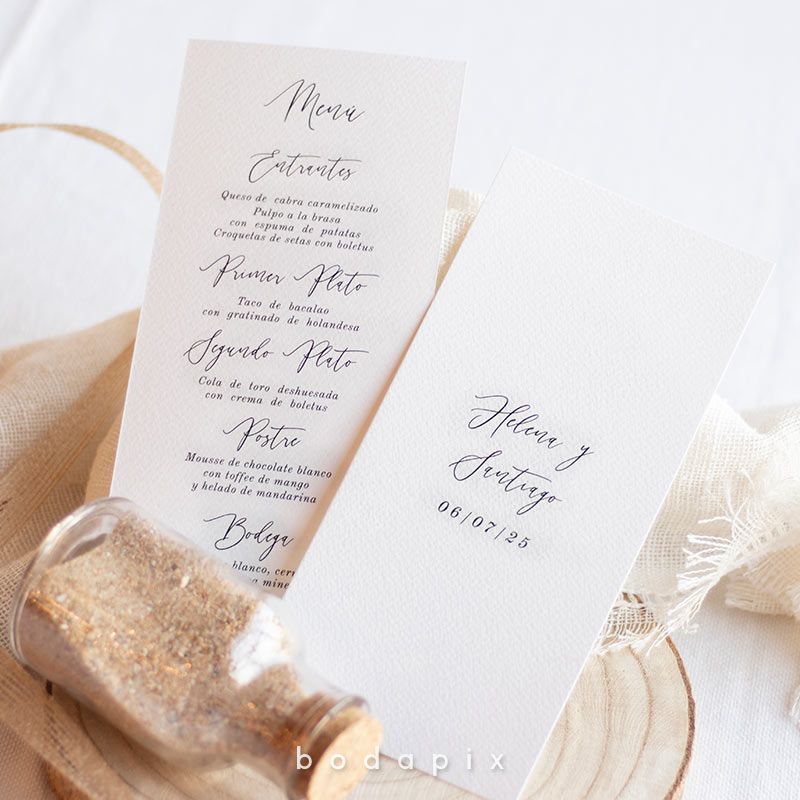 Menú
Entrantes
Queso de cabra caramelizado
Pulpo a la brasa
con espuma de patatas
Croquetas de setas con boletus
Primer Plato
Taco de bacalao
con gratinado de holandesa
Segundo Plato
Cola de toro deshuesada
con crema de boletus
Postre
Mousse de chocolate blanco
con toffee de mango
y helado de mandarina
Bodega
blanco,
Helena y
Santiago
06/07/25
bodapix